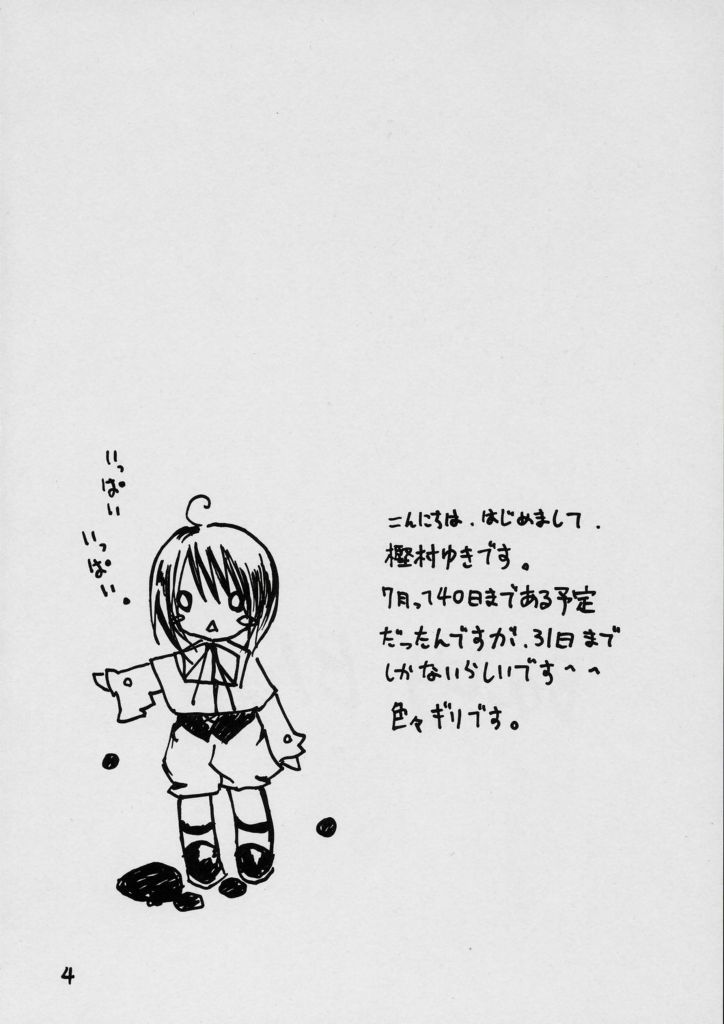 いっぱい
いっぱい。
こんにちは、はじめまして、
樫村ゆきです。
7月って40日まである予定
だったんですが、31日まで
しかないらしいです^^
色々ギリです。
4